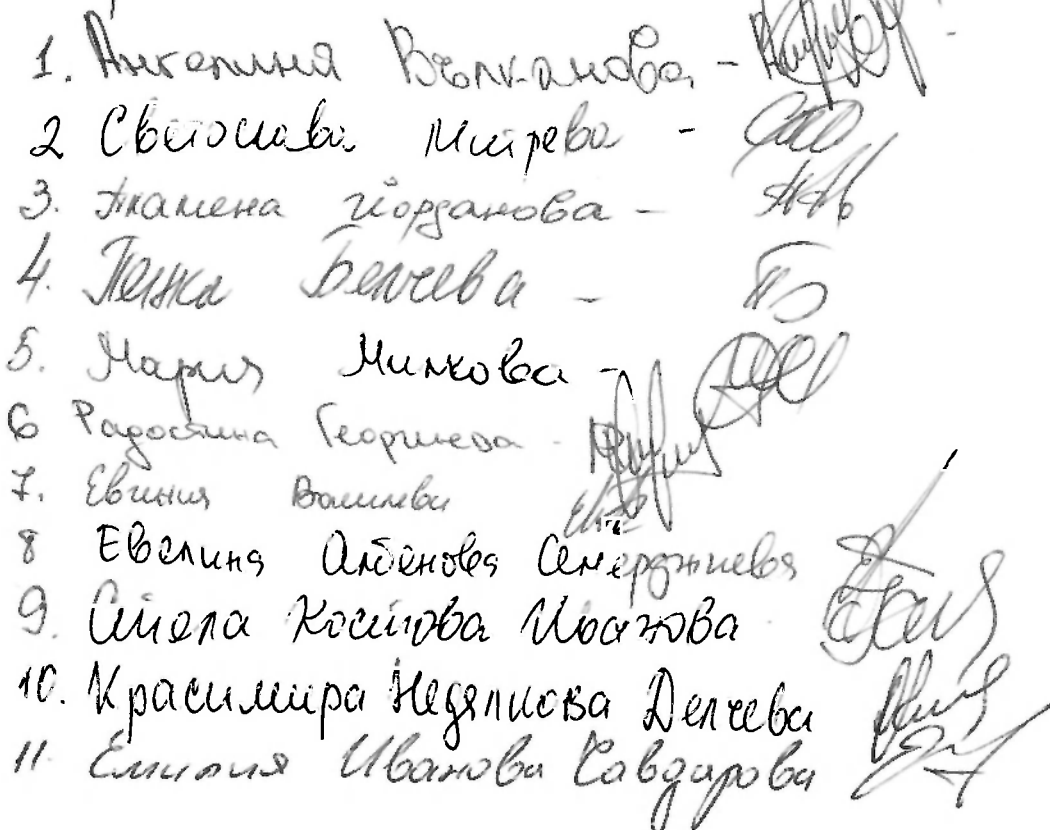 1. Ангелиня Вълканова -
2 Светослава Митрева -
3. Пламена Йорданова -
4. Пенка Белчева -
5. Мария Милкова -
6 Радостина Георгиева -
7. Евгения Василева
8 Евелина Албенова Семерджиева
9. Стела Костова Иванова
10. Красимира Недялкова Делчева
11. Емилия Иванова Савдарова